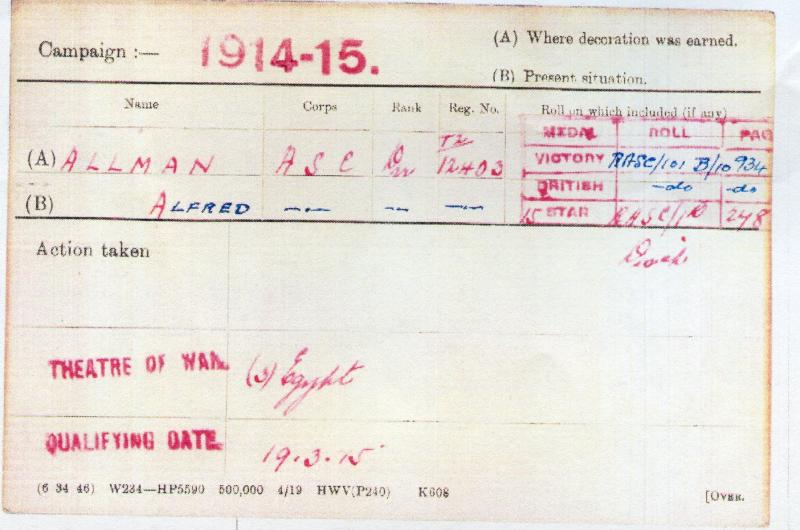 Campaign :— 1914-15. (A) Where decoration was earned.
(B) Present situation.
Name Corps Rank Reg. No. Roll on which included (if any)
MEDAL ROLL PAG
(A) ALLMAN ASC Dvr T2 12403 VICTORY RASC/101 B/10 934
BRITISH —do —do
(B) ALFRED —·— —— —·— 15 STAR RASC/ 248
Action taken
THEATRE OF WAR. (3) Egypt
QUALIFYING DATE. 19.3.15
(6 34 46) W234—HP5590 500,000 4/19 HWV(P240) K608 [OVER.